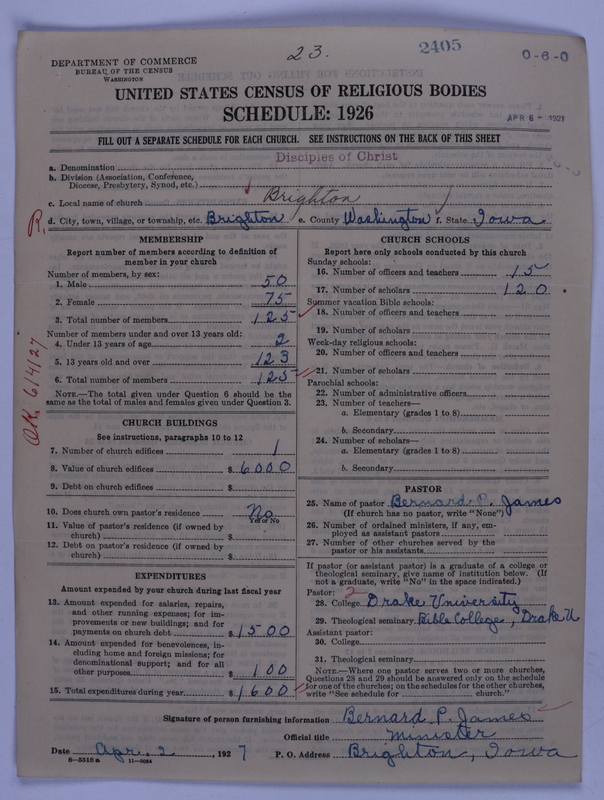 23.
2405
0-6-0
DEPARTMENT OF COMMERCE
BUREAU OF THE CENSUS
WASHINGTON
UNITED STATES CENSUS OF RELIGIOUS BODIES
SCHEDULE: 1926
APR 6 - 1927
FILL OUT A SEPARATE SCHEDULE FOR EACH CHURCH. SEE INSTRUCTIONS ON THE BACK OF THIS SHEET
a. Denomination Disciples of Christ
b. Division (Association, Conference, Diocese, Presbytery, Synod, etc.)
c. Local name of church Brighton
R. d. City, town, village, or township, etc. Brighton e. County Washington f. State Iowa
MEMBERSHIP
Report number of members according to definition of member in your church
Number of members, by sex:
1. Male 50
2. Female 75
3. Total number of members 125
Number of members under and over 13 years old:
4. Under 13 years of age 2
5. 13 years old and over 123
6. Total number of members 125
NOTE.—The total given under Question 6 should be the same as the total of males and females given under Question 3.
OK 6/4/27
CHURCH BUILDINGS
See instructions, paragraphs 10 to 12
7. Number of church edifices 1
8. Value of church edifices $ 6000
9. Debt on church edifices $
10. Does church own pastor's residence No
Yes or No
11. Value of pastor's residence (if owned by church) $
12. Debt on pastor's residence (if owned by church) $
EXPENDITURES
Amount expended by your church during last fiscal year
13. Amount expended for salaries, repairs, and other running expenses; for improvements or new buildings; and for payments on church debt $ 1500
14. Amount expended for benevolences, including home and foreign missions; for denominational support; and for all other purposes $ 100
15. Total expenditures during year $ 1600
CHURCH SCHOOLS
Report here only schools conducted by this church
Sunday schools:
16. Number of officers and teachers 15
17. Number of scholars 120
Summer vacation Bible schools:
18. Number of officers and teachers
19. Number of scholars
Week-day religious schools:
20. Number of officers and teachers
21. Number of scholars
Parochial schools:
22. Number of administrative officers
23. Number of teachers—
a. Elementary (grades 1 to 8)
b. Secondary
24. Number of scholars—
a. Elementary (grades 1 to 8)
b. Secondary
PASTOR
25. Name of pastor Bernard P. James
(If church has no pastor, write "None")
26. Number of ordained ministers, if any, employed as assistant pastors
27. Number of other churches served by the pastor or his assistants
If pastor (or assistant pastor) is a graduate of a college or theological seminary, give name of institution below. (If not a graduate, write "No" in the space indicated.)
Pastor: 2
28. College Drake University
29. Theological seminary Bible College, Drake U
Assistant pastor:
30. College
31. Theological seminary
NOTE.—Where one pastor serves two or more churches, Questions 28 and 29 should be answered only on the schedule for one of the churches; on the schedules for the other churches, write "See schedule for church."
Signature of person furnishing information Bernard P. James
Official title Minister
Date Apr. 2, 1927 P. O. Address Brighton, Iowa
8-5518a 11-9084